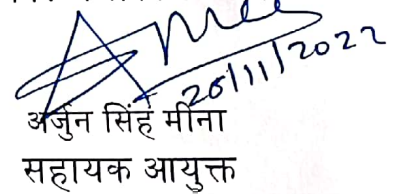 26/11/2022
अर्जुन सिंह मीना
सहायक आयुक्त